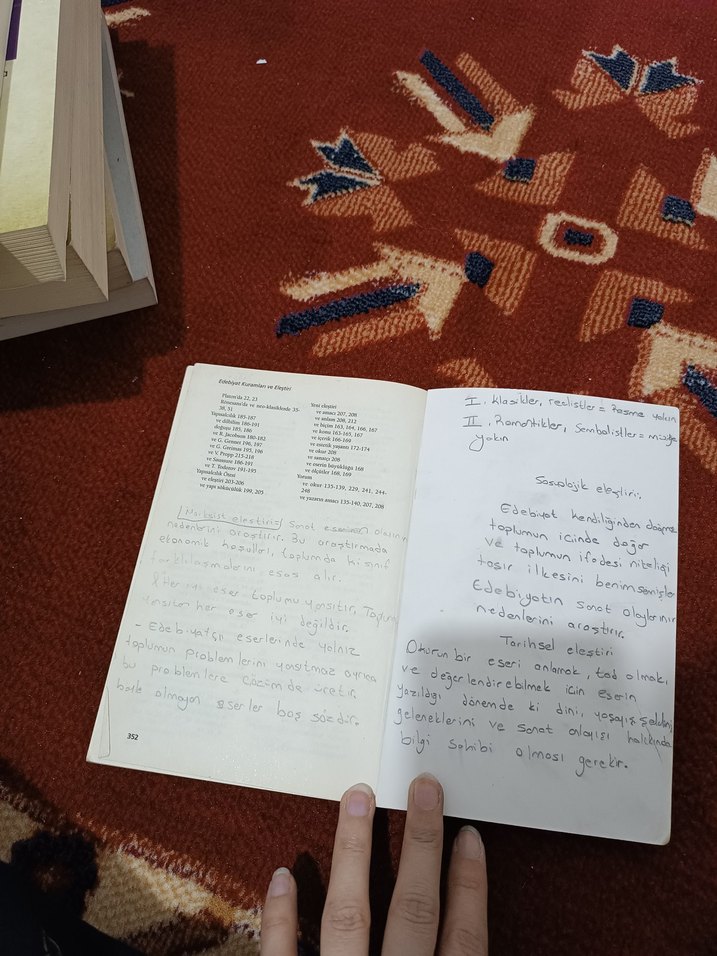 Edebiyat Kuramları ve Eleştiri
Platon'da 22, 23
Rönesans'da ve neo-klasiklerde 35-
38, 51
Yapısalcılık 185-187
ve dilbilim 186-191
doğuşu 185, 186
ve R. Jacobson 180-182
ve G. Gennet 196, 197
ve G. Gerimas 195, 196
ve V. Propp 215-218
ve Saussure 186-191
ve T. Todorov 191-195
Yapısalcılık Ötesi
ve eleştiri 203-206
ve yapı sökücülük 199, 205
Yeni eleştiri
ve amacı 207, 208
ve anlam 208, 212
ve biçim 163, 164, 166, 167
ve konu 163-165, 167
ve içerik 166-169
ve estetik yaşantı 172-174
ve okur 208
ve sanatçı 208
ve eserin büyüklüğü 168
ve ölçütler 168, 169
Yorum
ve okur 135-139, 229, 241, 244-
248
ve yazarın amacı 135-140, 207, 208
Marksist eleştiri= Sanat olayının
nedenlerini araştırır. Bu araştırmada
ekonomik koşulları, toplumda ki sınıf
farklılaşmalarını esas alır.
Her iyi eser toplumu yansıtır. Toplumu
yansıtan her eser iyi değildir.
- Edebiyatçı eserlerinde yalnız
toplumun problemlerini yansıtmaz ayrıca
bu problemlere çözüm de üretir.
böyle olmayan eserler boş sözdür.
352
I. Klasikler, realistler = Resme yakın
II. Romantikler, Sembolistler = müziğe
yakın
Sosyolojik eleştiri:
Edebiyat kendiliğinden doğmaz
toplumun içinde doğar
ve toplumun ifadesi niteliği
taşır ilkesini benimsemişler
Edebiyatın sanat olaylarının
nedenlerini araştırır.
Tarihsel eleştiri
Okurun bir eseri anlamak, tad almak,
ve değerlendirebilmek için eserin
yazıldığı dönemde ki dini, yaşayış şeklini,
geleneklerini ve sanat anlayışı hakkında
bilgi sahibi olması gerekir.